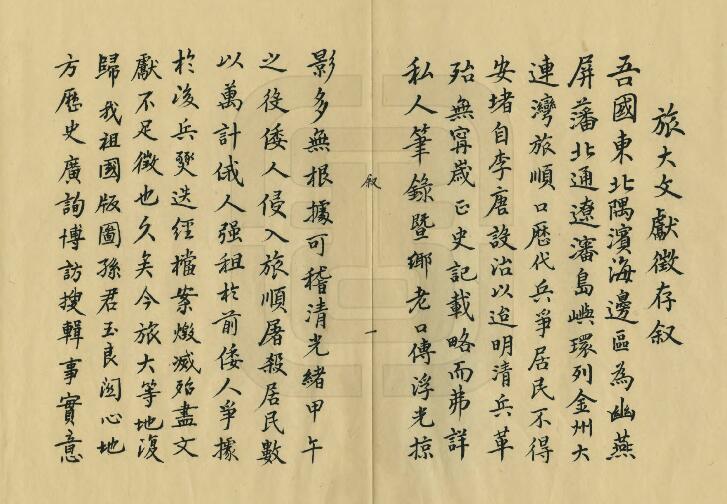 旅大文獻徵存叙
吾國東北隅濱海邊區為幽燕
屏藩北通遼瀋島嶼環列金州大
連灣旅順口歷代兵爭居民不得
安堵自李唐設治以迨明清兵革
殆無甯歲正史記載略而弗詳
私人筆錄暨鄉老口傳浮光掠
叙
一
影多無根據可稽清光緒甲午
之役倭人侵入旅順屠殺居民數
以萬計俄人强租於前倭人爭據
於後兵燹迭經檔案燬滅殆盡文
獻不足徵也久矣今旅大等地復
歸我祖國版圖孫君玉良関心地
方歷史廣詢博訪搜輯事實意